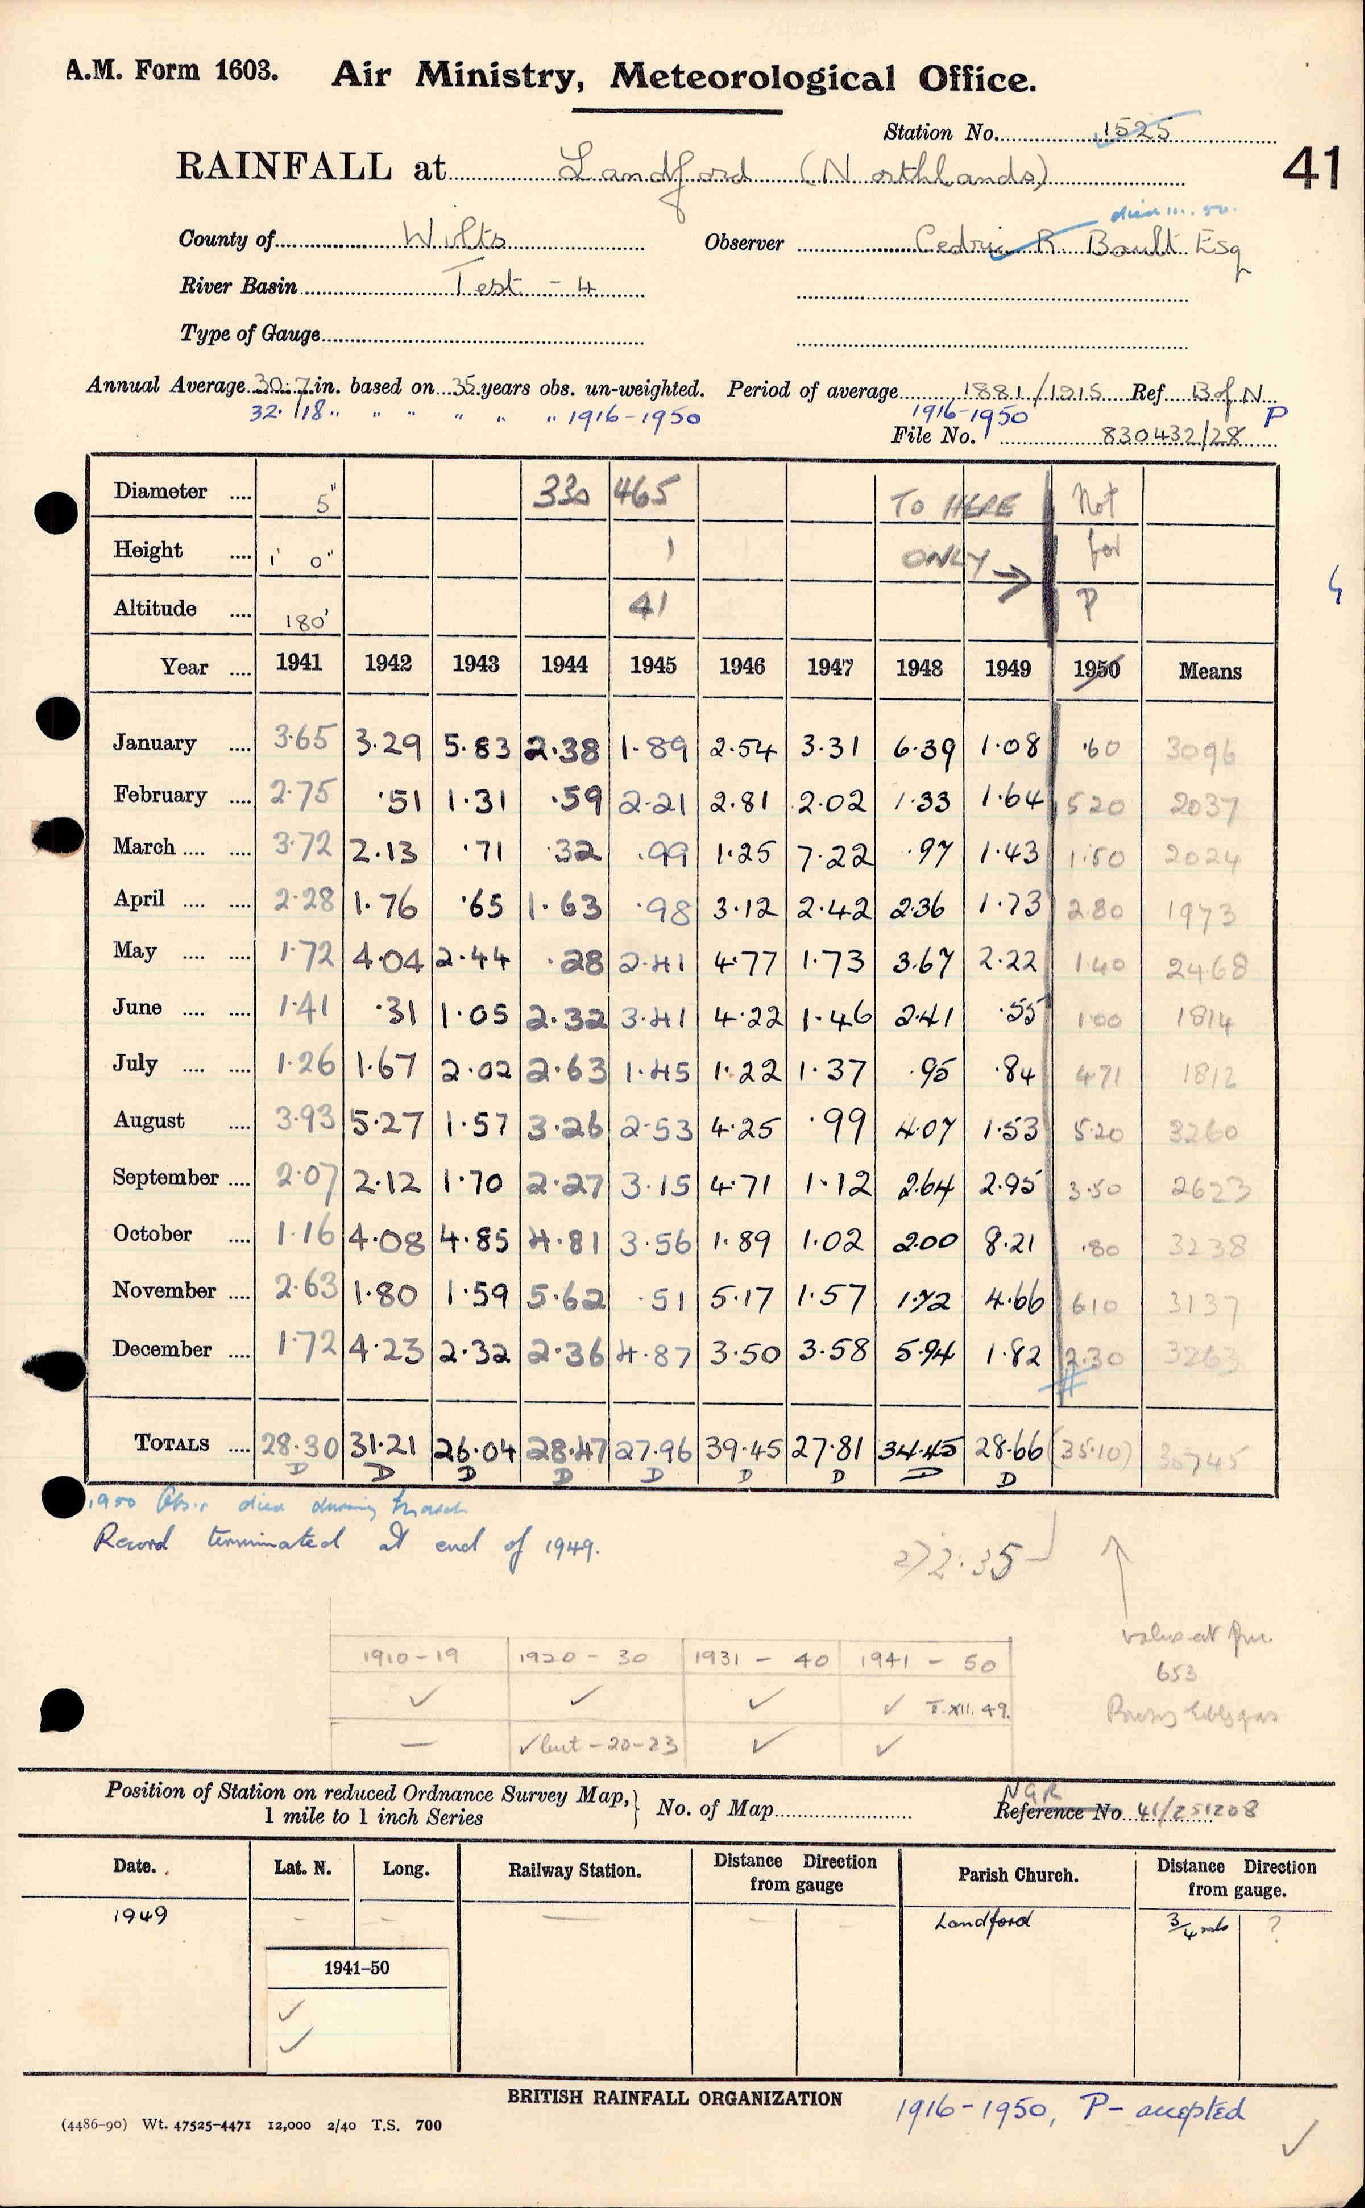 A.M. Form 1603. Air Ministry, Meteorological Office.
Station No. 1525
41
RAINFALL at Landford (Northlands)
died III. 50.
County of Wilts Observer Cedric R. Boult Esq
River Basin Test - 4
Type of Gauge
Annual Average 30.7 in. based on 35 years obs. un-weighted. Period of average 1881/1915 Ref B of N
32.18 " " " " " " 1916-1950 1916-1950 P
File No. 830432/28
Diameter .... 5" 330 465 TO HERE Not
Height .... 1' 0" 1 ONLY → for
Altitude .... 180' 41 P
Year .... 1941 1942 1943 1944 1945 1946 1947 1948 1949 1950 Means
January .... 3.65 3.29 5.83 2.38 1.89 2.54 3.31 6.39 1.08 .60 3096
February .... 2.75 .51 1.31 .59 2.21 2.81 2.02 1.33 1.64 520 2037
March .... .... 3.72 2.13 .71 .32 .99 1.25 7.22 .97 1.43 1.50 2024
April .... .... 2.28 1.76 .65 1.63 .98 3.12 2.42 2.36 1.73 2.80 1973
May .... .... 1.72 4.04 2.44 .28 2.41 4.77 1.73 3.67 2.22 1.40 2468
June .... .... 1.41 .31 1.05 2.32 3.41 4.22 1.46 2.41 .55 1.00 1814
July .... .... 1.26 1.67 2.02 2.63 1.45 1.22 1.37 .95 .84 4.71 1812
August .... 3.93 5.27 1.57 3.26 2.53 4.25 .99 4.07 1.53 5.20 3260
September .... 2.07 2.12 1.70 2.27 3.15 4.71 1.12 2.64 2.95 3.50 2623
October .... 1.16 4.08 4.85 4.81 3.56 1.89 1.02 2.00 8.21 .80 3238
November .... 2.63 1.80 1.59 5.62 .51 5.17 1.57 1.72 4.66 610 3137
December .... 1.72 4.23 2.32 2.36 4.87 3.50 3.58 5.94 1.82 2.30 3263
TOTALS .... 28.30 31.21 26.04 28.47 27.96 39.45 27.81 34.45 28.66 (35.10) 30745
D D D D D D D D D
1950 Obsr died during March
Record terminated at end of 1949.
2)2.35
values at
653
1910-19 1920-30 1931-40 1941-50
✓ ✓ ✓ ✓ T.XII.49.
— ✓ but -20-23 ✓ ✓
Position of Station on reduced Ordnance Survey Map, 1 mile to 1 inch Series } No. of Map NGR Reference No 41/251208
Date. Lat. N. Long. Railway Station. Distance Direction from gauge Parish Church. Distance Direction from gauge.
1949 - - — - - Landford 3/4 mls ?
1941-50
✓
✓
BRITISH RAINFALL ORGANIZATION
1916-1950, P- accepted
(4486-90) Wt. 47525-4471 12,000 2/40 T.S. 700
✓